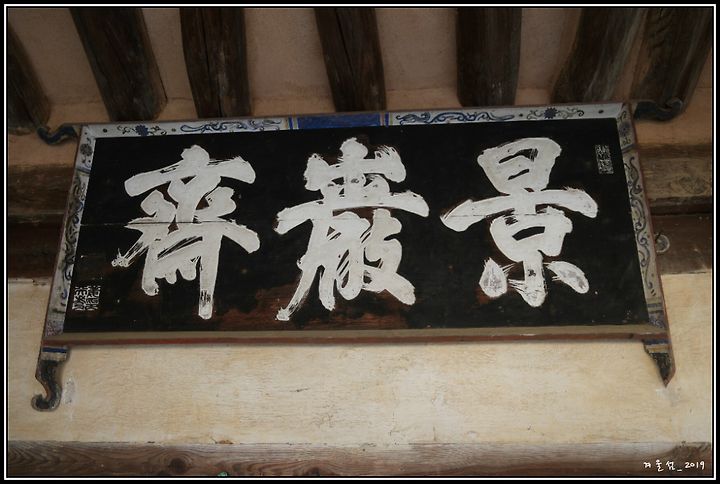 景巖齋
겨울섬_2019